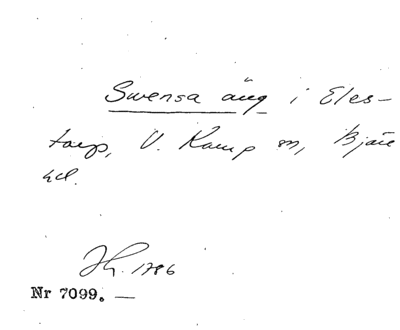 Swensa äng i Eles-
torp, V. Karup sn, Bjäre
hd.
Jh. 1786
Nr 7099. —